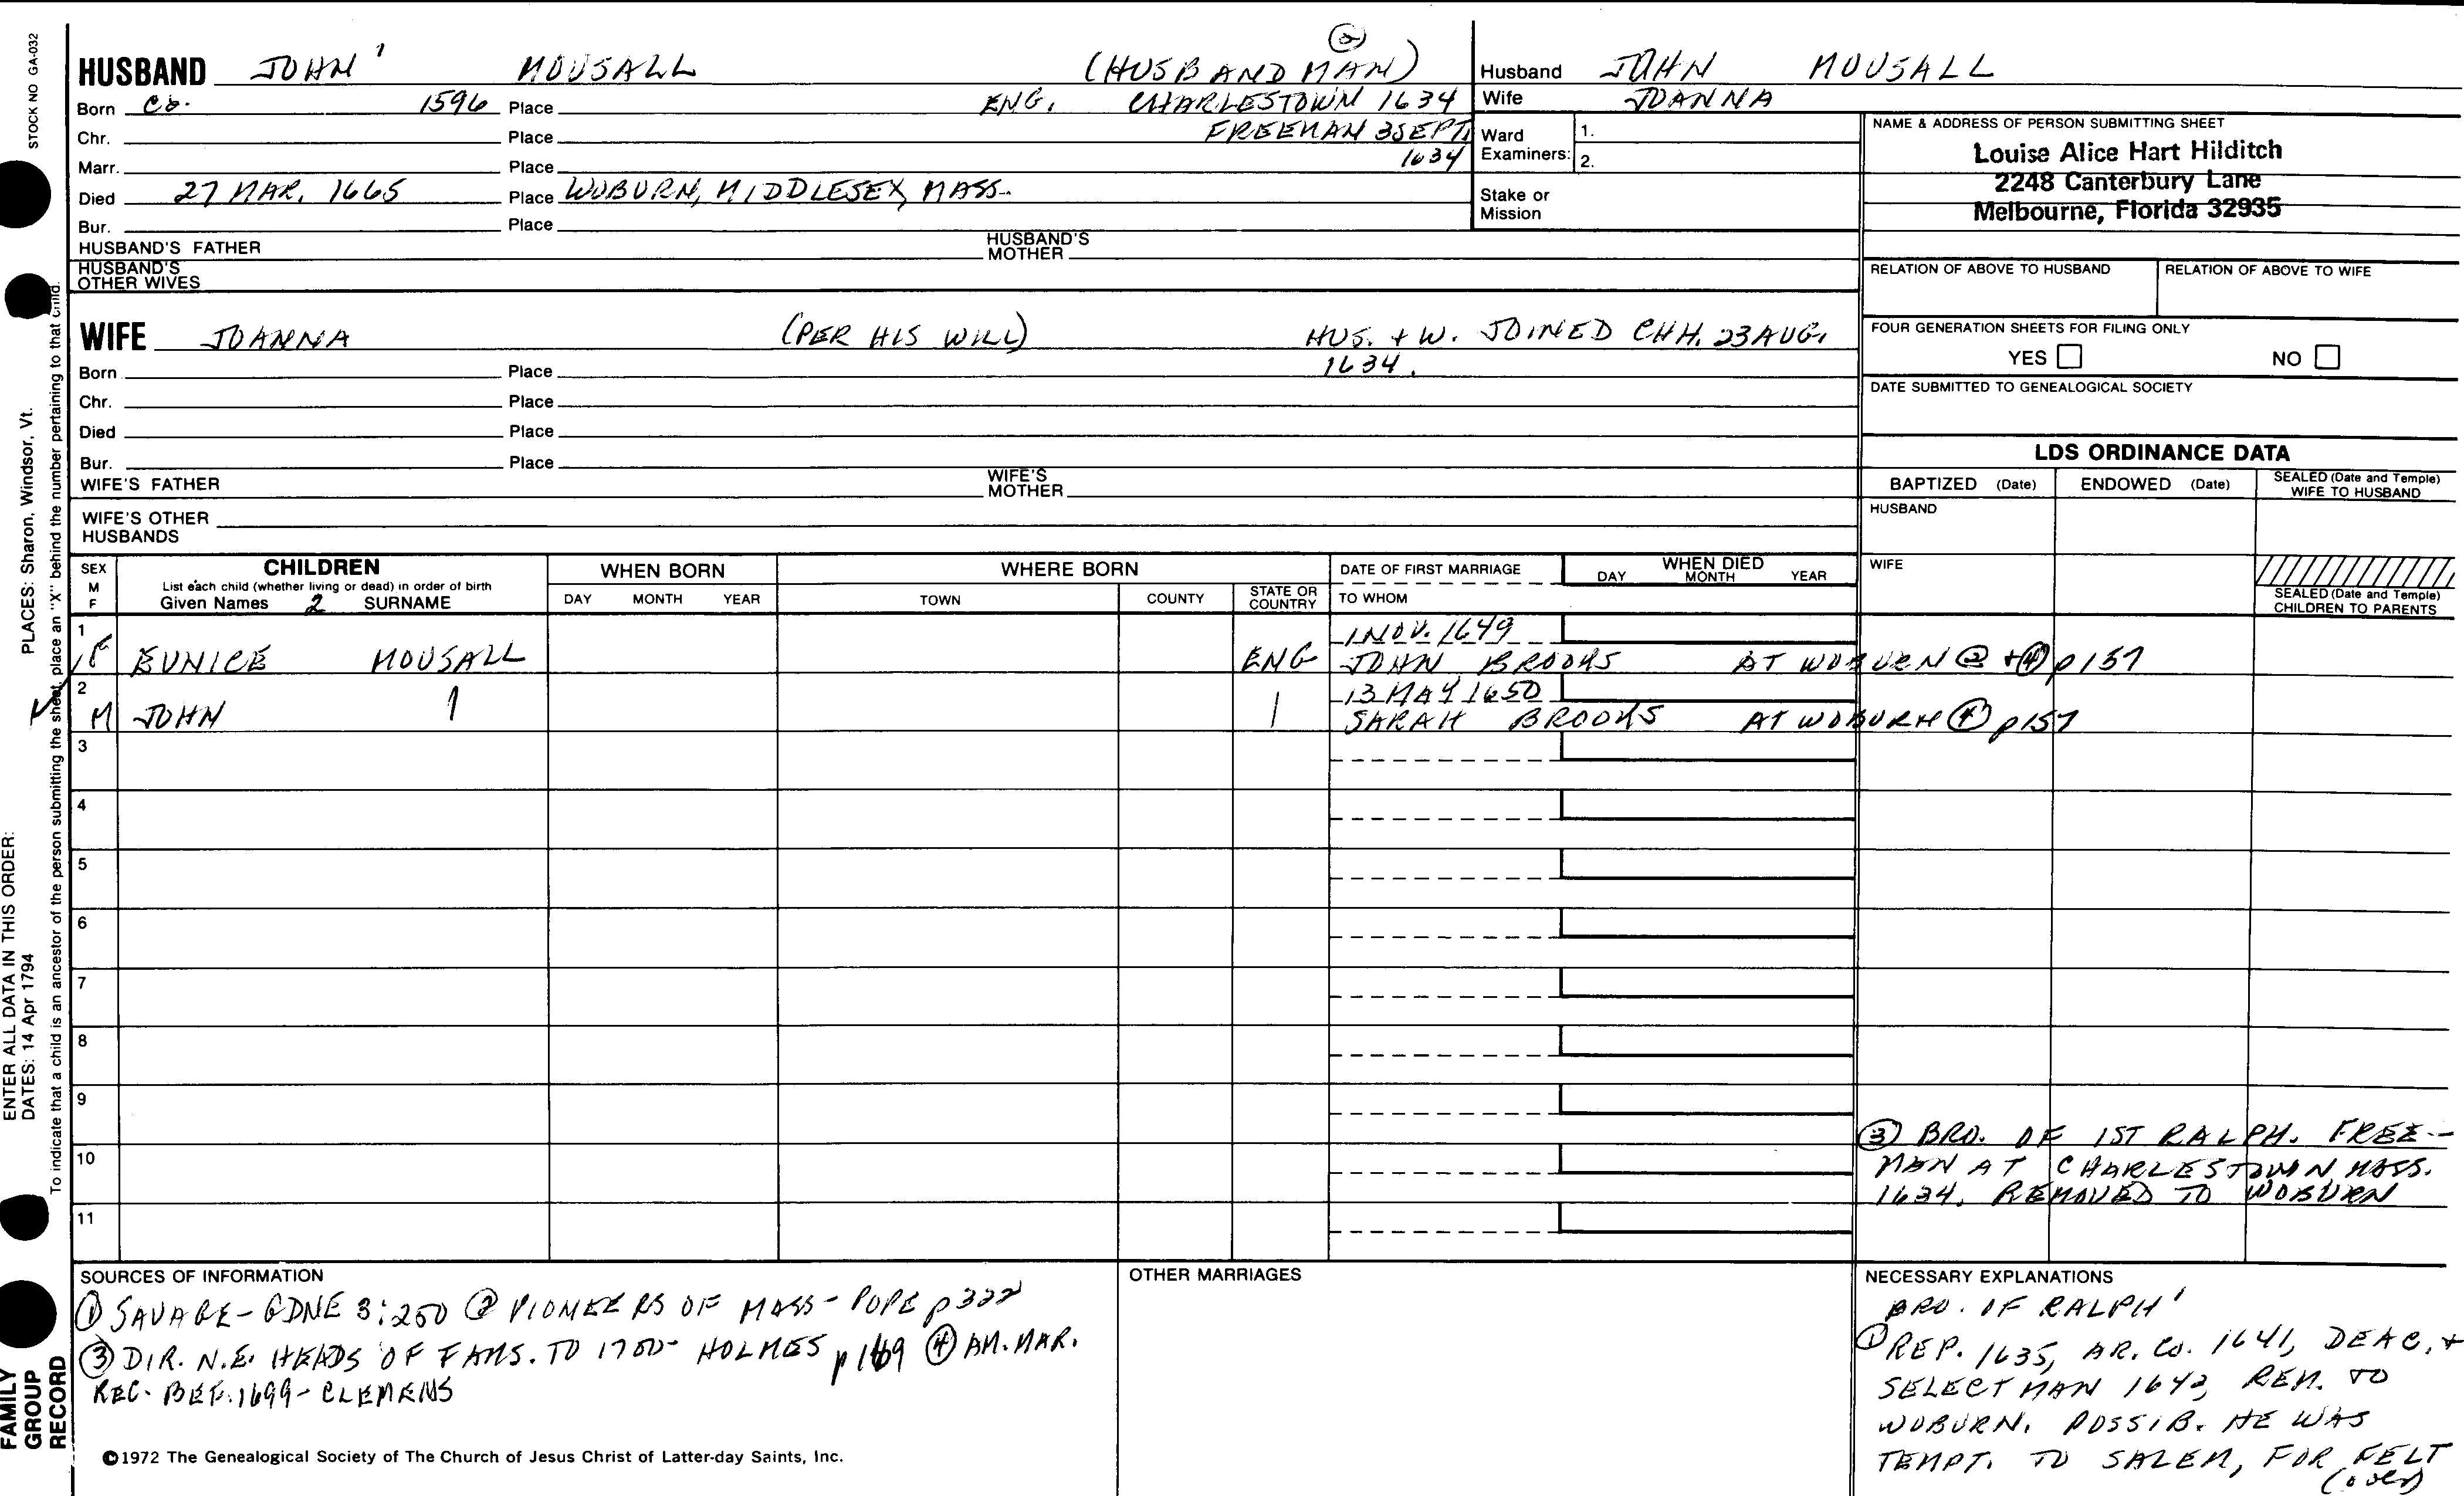 STOCK NO GA-032
PLACES: Sharon, Windsor, Vt.
ENTER ALL DATA IN THIS ORDER:
DATES: 14 Apr 1794
To indicate that a child is an ancestor of the person submitting the sheet, place an "X" behind the number pertaining to that child.
FAMILY
GROUP
RECORD
HUSBAND JOHN 1 MOUSALL (HUSBANDMAN) ②
Born Co. 1596 Place ENG. CHARLESTOWN 1634
Chr. Place FREEMAN 3 SEPT.
Marr. Place 1634
Died 27 MAR. 1665 Place WOBURN, MIDDLESEX, MASS.
Bur. Place
HUSBAND'S FATHER HUSBAND'S MOTHER
HUSBAND'S
OTHER WIVES
Husband JOHN MOUSALL
Wife JOANNA
Ward
Examiners: 1.
2.
Stake or
Mission
NAME & ADDRESS OF PERSON SUBMITTING SHEET
Louise Alice Hart Hilditch
2248 Canterbury Lane
Melbourne, Florida 32935
RELATION OF ABOVE TO HUSBAND RELATION OF ABOVE TO WIFE
FOUR GENERATION SHEETS FOR FILING ONLY
YES NO
DATE SUBMITTED TO GENEALOGICAL SOCIETY
WIFE JOANNA (PER HIS WILL) HUS. + W. JOINED CHH. 23 AUG.
1634.
Born Place
Chr. Place
Died Place
Bur. Place
WIFE'S FATHER WIFE'S MOTHER
WIFE'S OTHER
HUSBANDS
LDS ORDINANCE DATA
BAPTIZED (Date) ENDOWED (Date) SEALED (Date and Temple)
WIFE TO HUSBAND
HUSBAND
WIFE
SEALED (Date and Temple)
CHILDREN TO PARENTS
SEX
M
F
CHILDREN
List each child (whether living or dead) in order of birth
Given Names 2 SURNAME
WHEN BORN
DAY MONTH YEAR
WHERE BORN
TOWN COUNTY STATE OR COUNTRY
DATE OF FIRST MARRIAGE
TO WHOM
WHEN DIED
DAY MONTH YEAR
1 1 NOV. 1649
F EUNICE MOUSALL ENG JOHN BROOKS AT WOBURN ② + ④ p157
2 13 MAY 1650
M JOHN 1 | SARAH BROOKS AT WOBURN ④ p157
3
4
5
6
7
8
9
10
11
③ BRO. OF 1ST RALPH. FREE-
MAN AT CHARLESTOWN MASS.
1634, REMOVED TO WOBURN
SOURCES OF INFORMATION
① SAVAGE - GDNE 3:250 ② PIONEERS OF MASS - POPE p322
③ DIR. N.E. HEADS OF FAMS. TO 1700 - HOLMES p169 ④ AM. MAR.
REC. BEF. 1699 - CLEMENS
OTHER MARRIAGES
NECESSARY EXPLANATIONS
BRO. OF RALPH 1
① REP. 1635, AR. CO. 1641, DEAC. +
SELECTMAN 1642, REM. TO
WOBURN. POSSIB. HE WAS
TEMPT. TO SALEM, FOR FELT
(over)
©1972 The Genealogical Society of The Church of Jesus Christ of Latter-day Saints, Inc.